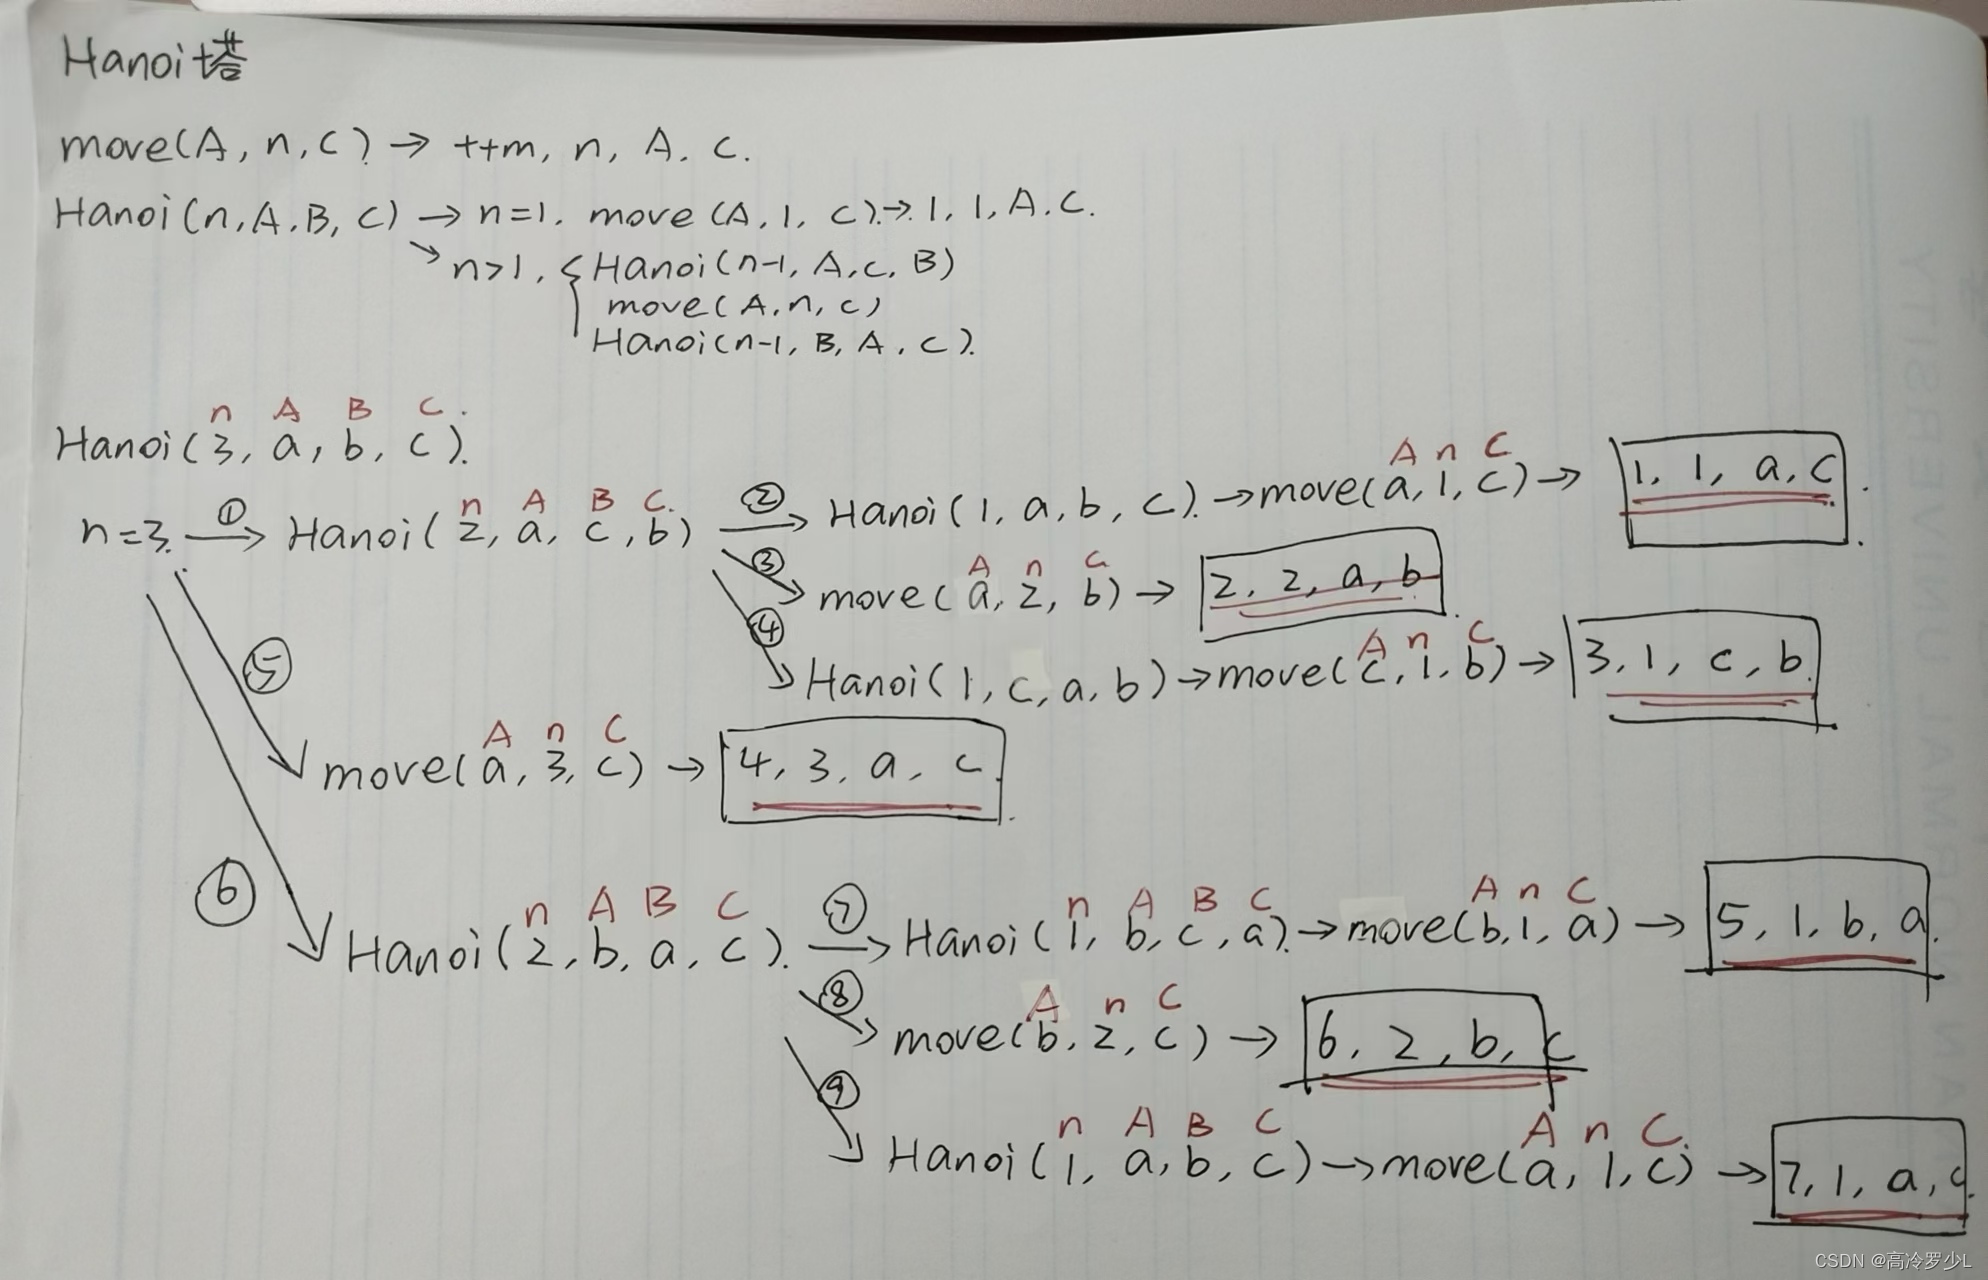 Hanoi塔
move(A, n, C) → ++m, n, A. C.
Hanoi(n, A, B, C) → n=1. move (A, 1, C). → 1, 1, A. C.
↘ n>1, { Hanoi(n-1, A, C, B)
move(A, n, C)
Hanoi(n-1, B, A, C).
n A B C.
Hanoi(3, a, b, c).
A n C
n A B C.
n=3. ① → Hanoi(2, a, c, b) ② → Hanoi(1, a, b, c). → move(a, 1, c) → 1, 1, a, c.
A n C
③ move(a, 2, b) → 2, 2, a, b.
A n C
④ Hanoi(1, c, a, b) → move(c, 1, b) → 3, 1, c, b.
A n C
⑤ move(a, 3, c) → 4, 3, a, c.
n A B C n A B C A n C
⑥ Hanoi(2, b, a, c). ⑦ → Hanoi(1, b, c, a). → move(b, 1, a) → 5, 1, b, a.
A n C
⑧ move(b, 2, c) → 6, 2, b, c
n A B C A n C.
⑨ Hanoi(1, a, b, c) → move(a, 1, c) → 7, 1, a, c.
CSDN @高冷罗少L